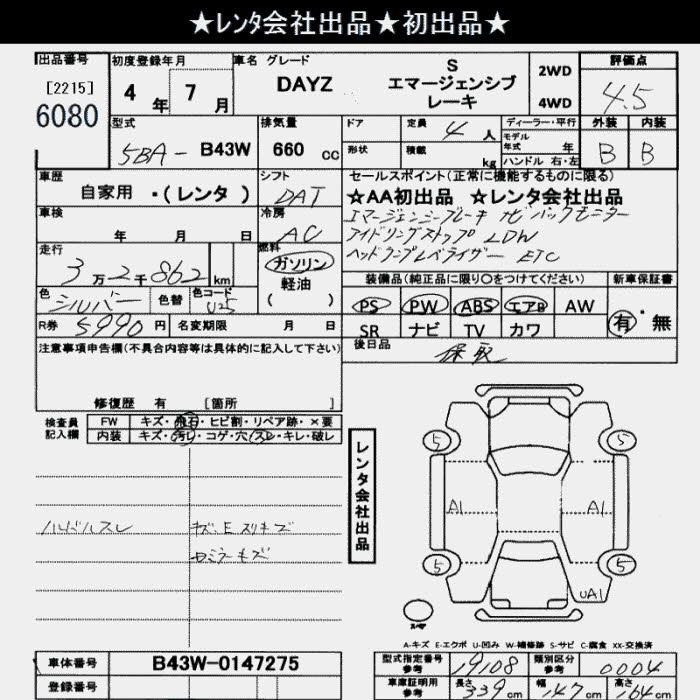 ★レンタ会社出品★初出品★
出品番号
[2215]
6080
初度登録年月
4年 7月
車名 グレード
DAYZ
S
エマージェンシブレーキ
2WD
4WD
評価点
4.5
型式
5BA- B43W
排気量
660 cc
ドア
定員 4人
形状
積載 kg
ディーラー・平行
モデル
年式 年
ハンドル 右・左
外装 内装
B B
車歴
自家用 ・(レンタ)
シフト
DAT
車検
年 月 日
冷房
AC
走行
3万2千862km
燃料
ガソリン
軽油
( )
色
シルバー
色替
色コード
R券 5990円
名変期限 月 日
セールスポイント(正常に機能するものに限る)
★AA初出品 ★レンタ会社出品
エマージェンシーブレーキ ナビ バックモニター
アイドリングストップ LDW
ヘッドランプレベライザー ETC
装備品(純正品に限り○をつけてください)
新車保証書
PS PW ABS エアB AW
SR ナビ TV カワ
有・無
後日品
保 取
注意事項申告欄(不具合内容等は具体的に記入して下さい)
修復歴 有 [箇所 ]
検査員
記入欄
FW キズ・飛石・ヒビ割・リペア跡・×要
内装 キズ・汚レ・コゲ・穴・スレ・キレ・破レ
ハンドルスレ
キズ、Eスリキズ
レンタ会社出品
5 5
A1 A1
5 5
UA1
A-キズ E-エクボ U-凹み W-補修跡 S-サビ C-腐食 XX-交換済
車体番号 B43W-0147275
登録番号
型式指定番号
参考
19108
類別区分
参考
0004
車庫証明用
参考
長さ 339cm
幅 147cm
高さ 164cm